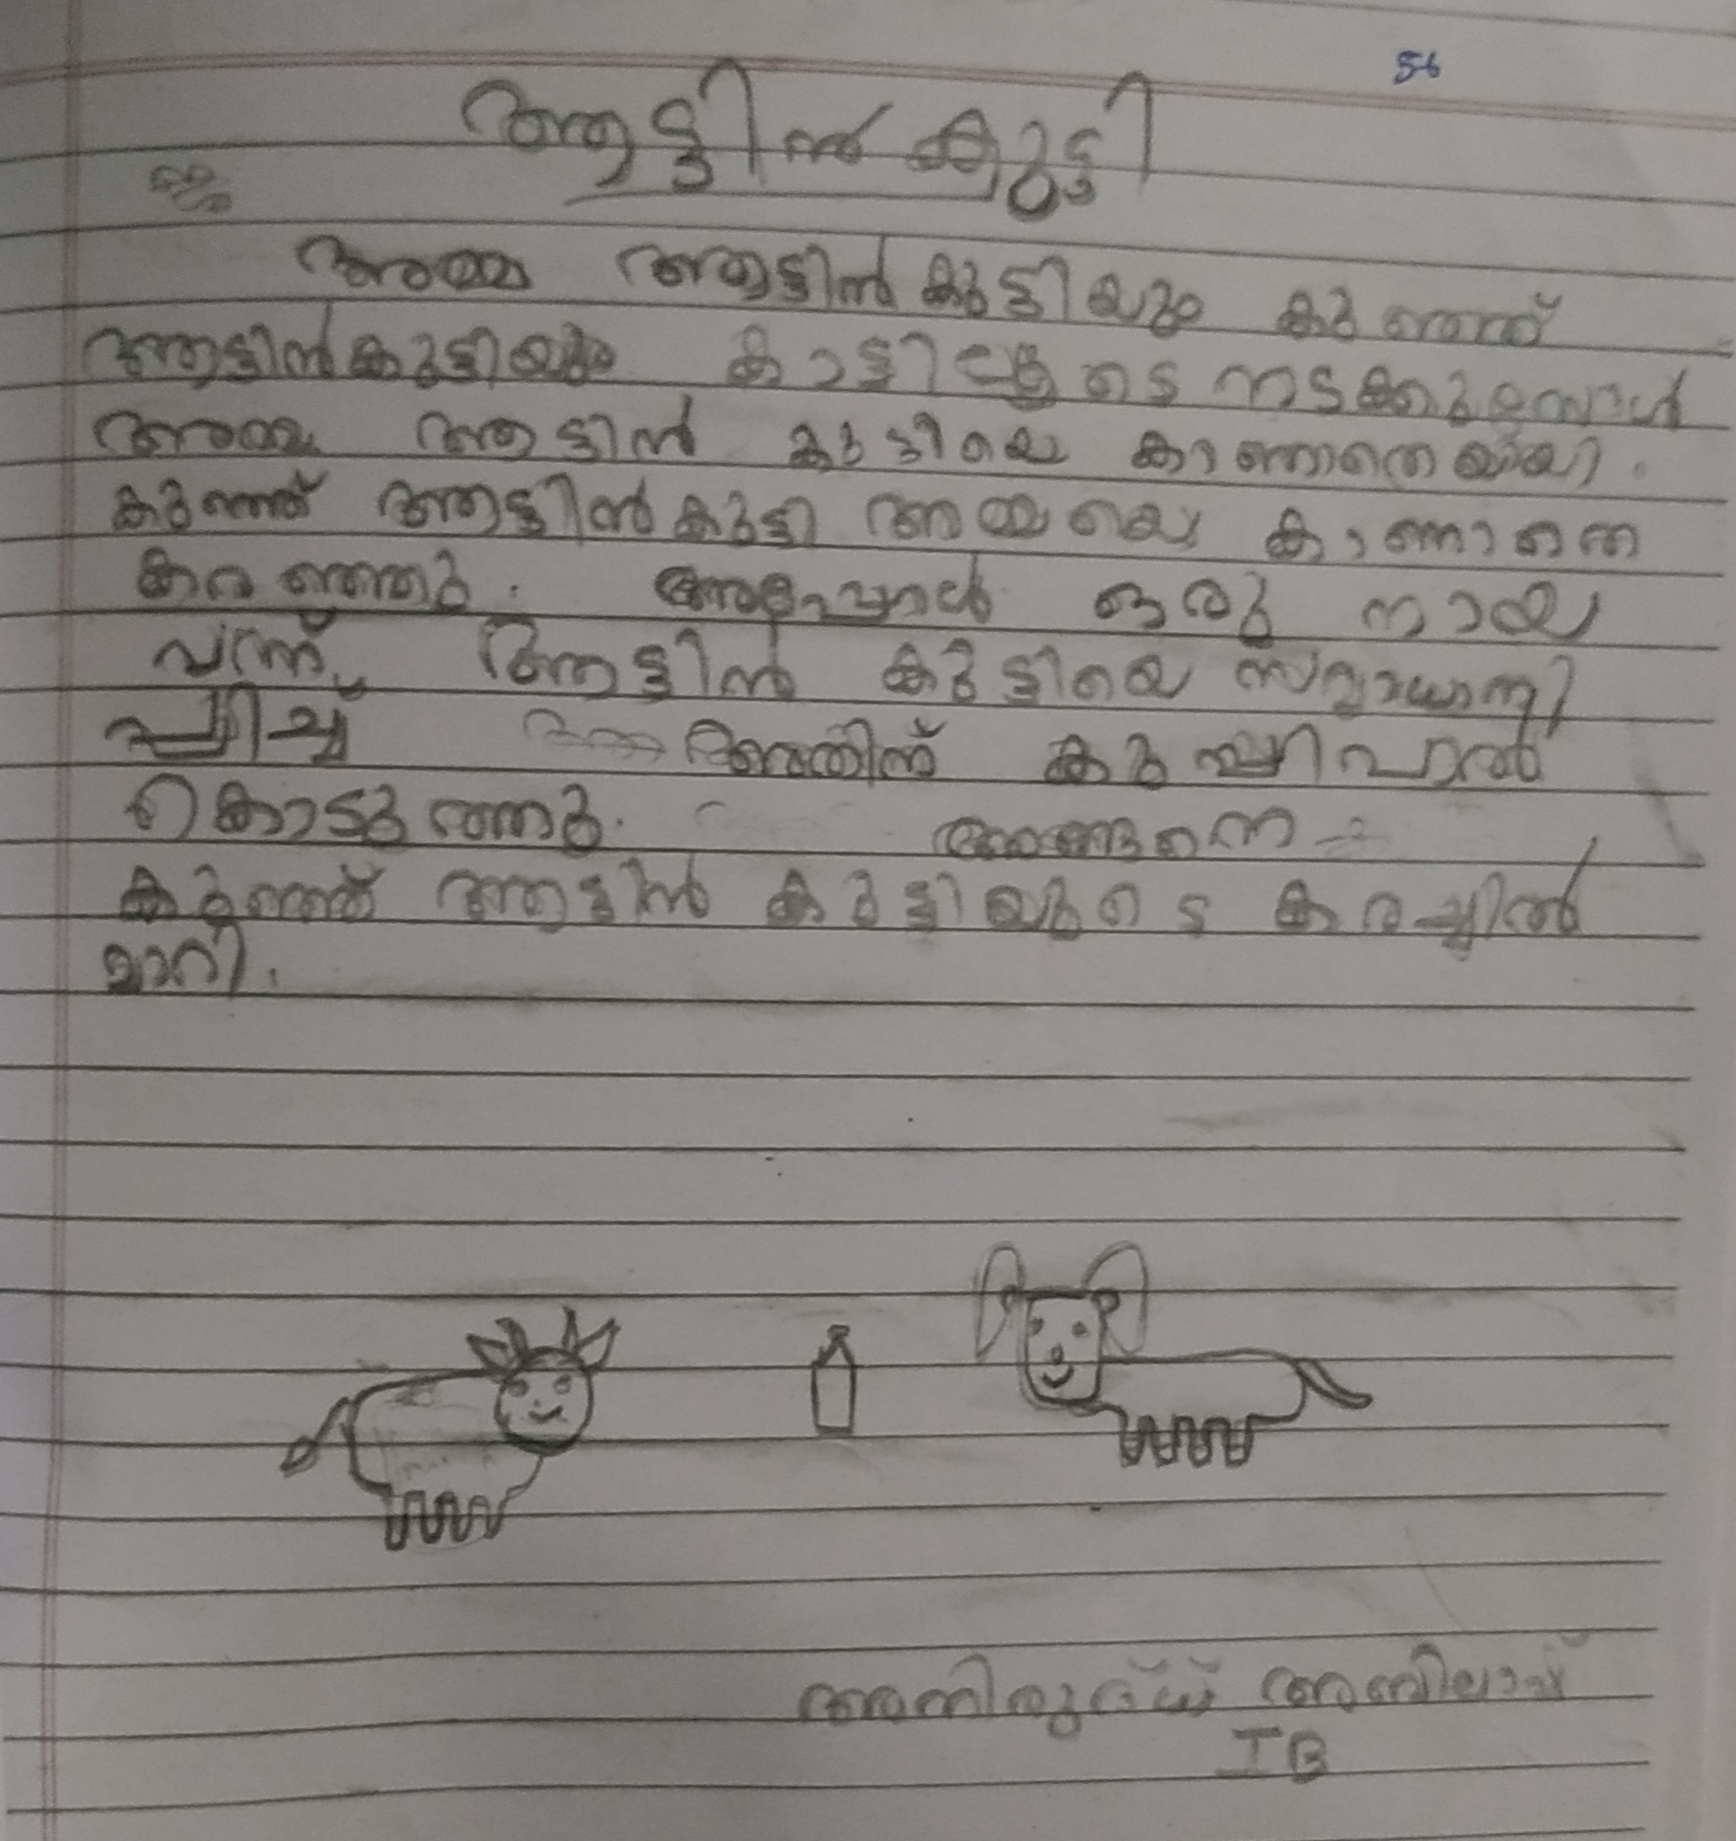 56
ആട്ടിൻകുട്ടി
അമ്മ ആട്ടിൻകുട്ടിയും കുഞ്ഞ്
ആട്ടിൻകുട്ടിയും കാട്ടിലൂടെ നടക്കുമ്പോൾ
അമ്മ ആട്ടിൻ കുട്ടിയെ കാണാതെയായി.
കുഞ്ഞ് ആട്ടിൻകുട്ടി അമ്മയെ കാണാതെ
കരഞ്ഞു. അപ്പോൾ ഒരു നായ
വന്ന് ആട്ടിൻ കുട്ടിയെ സമാധാനി
പ്പിച്ച് അതിന് കുപ്പിപാൽ
കൊടുത്തു. അങ്ങനെ
കുഞ്ഞ് ആട്ടിൻ കുട്ടിയുടെ കരച്ചിൽ
മാറി.
അനിരുദ്ധ് അഭിലാഷ്
I B